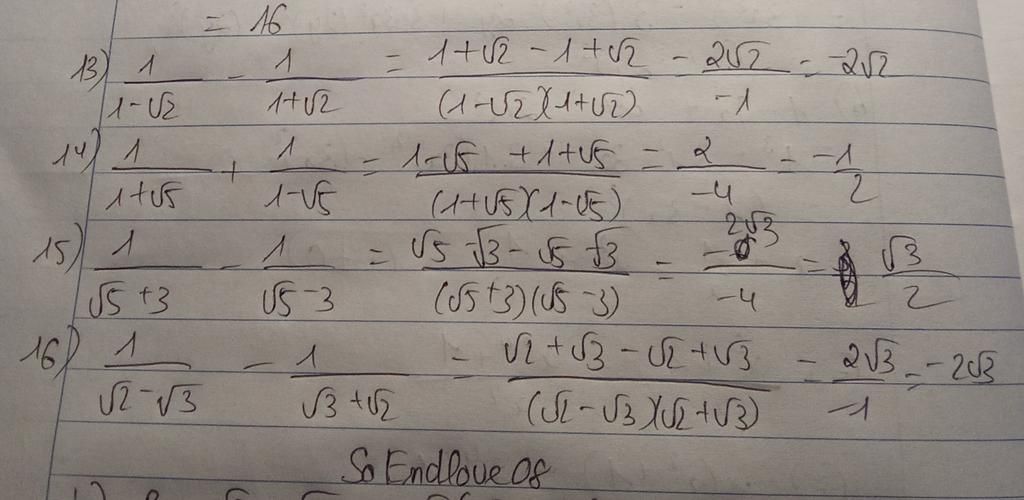 = 16
13) 1/(1-√2) - 1/(1+√2) = (1+√2 - 1+√2)/((1-√2)(1+√2)) = 2√2/-1 = -2√2
14) 1/(1+√5) + 1/(1-√5) = (1-√5 + 1+√5)/((1+√5)(1-√5)) = 2/-4 = -1/2
15) 1/(√5+3) - 1/(√5-3) = (√5 -√3 - √5 -√3)/((√5+3)(√5-3)) = -2√3/-4 = √3/2
16) 1/(√2-√3) - 1/(√3+√2) = (√2+√3 - √2+√3)/((√2-√3)(√2+√3)) = 2√3/-1 = -2√3
So Endlove 08